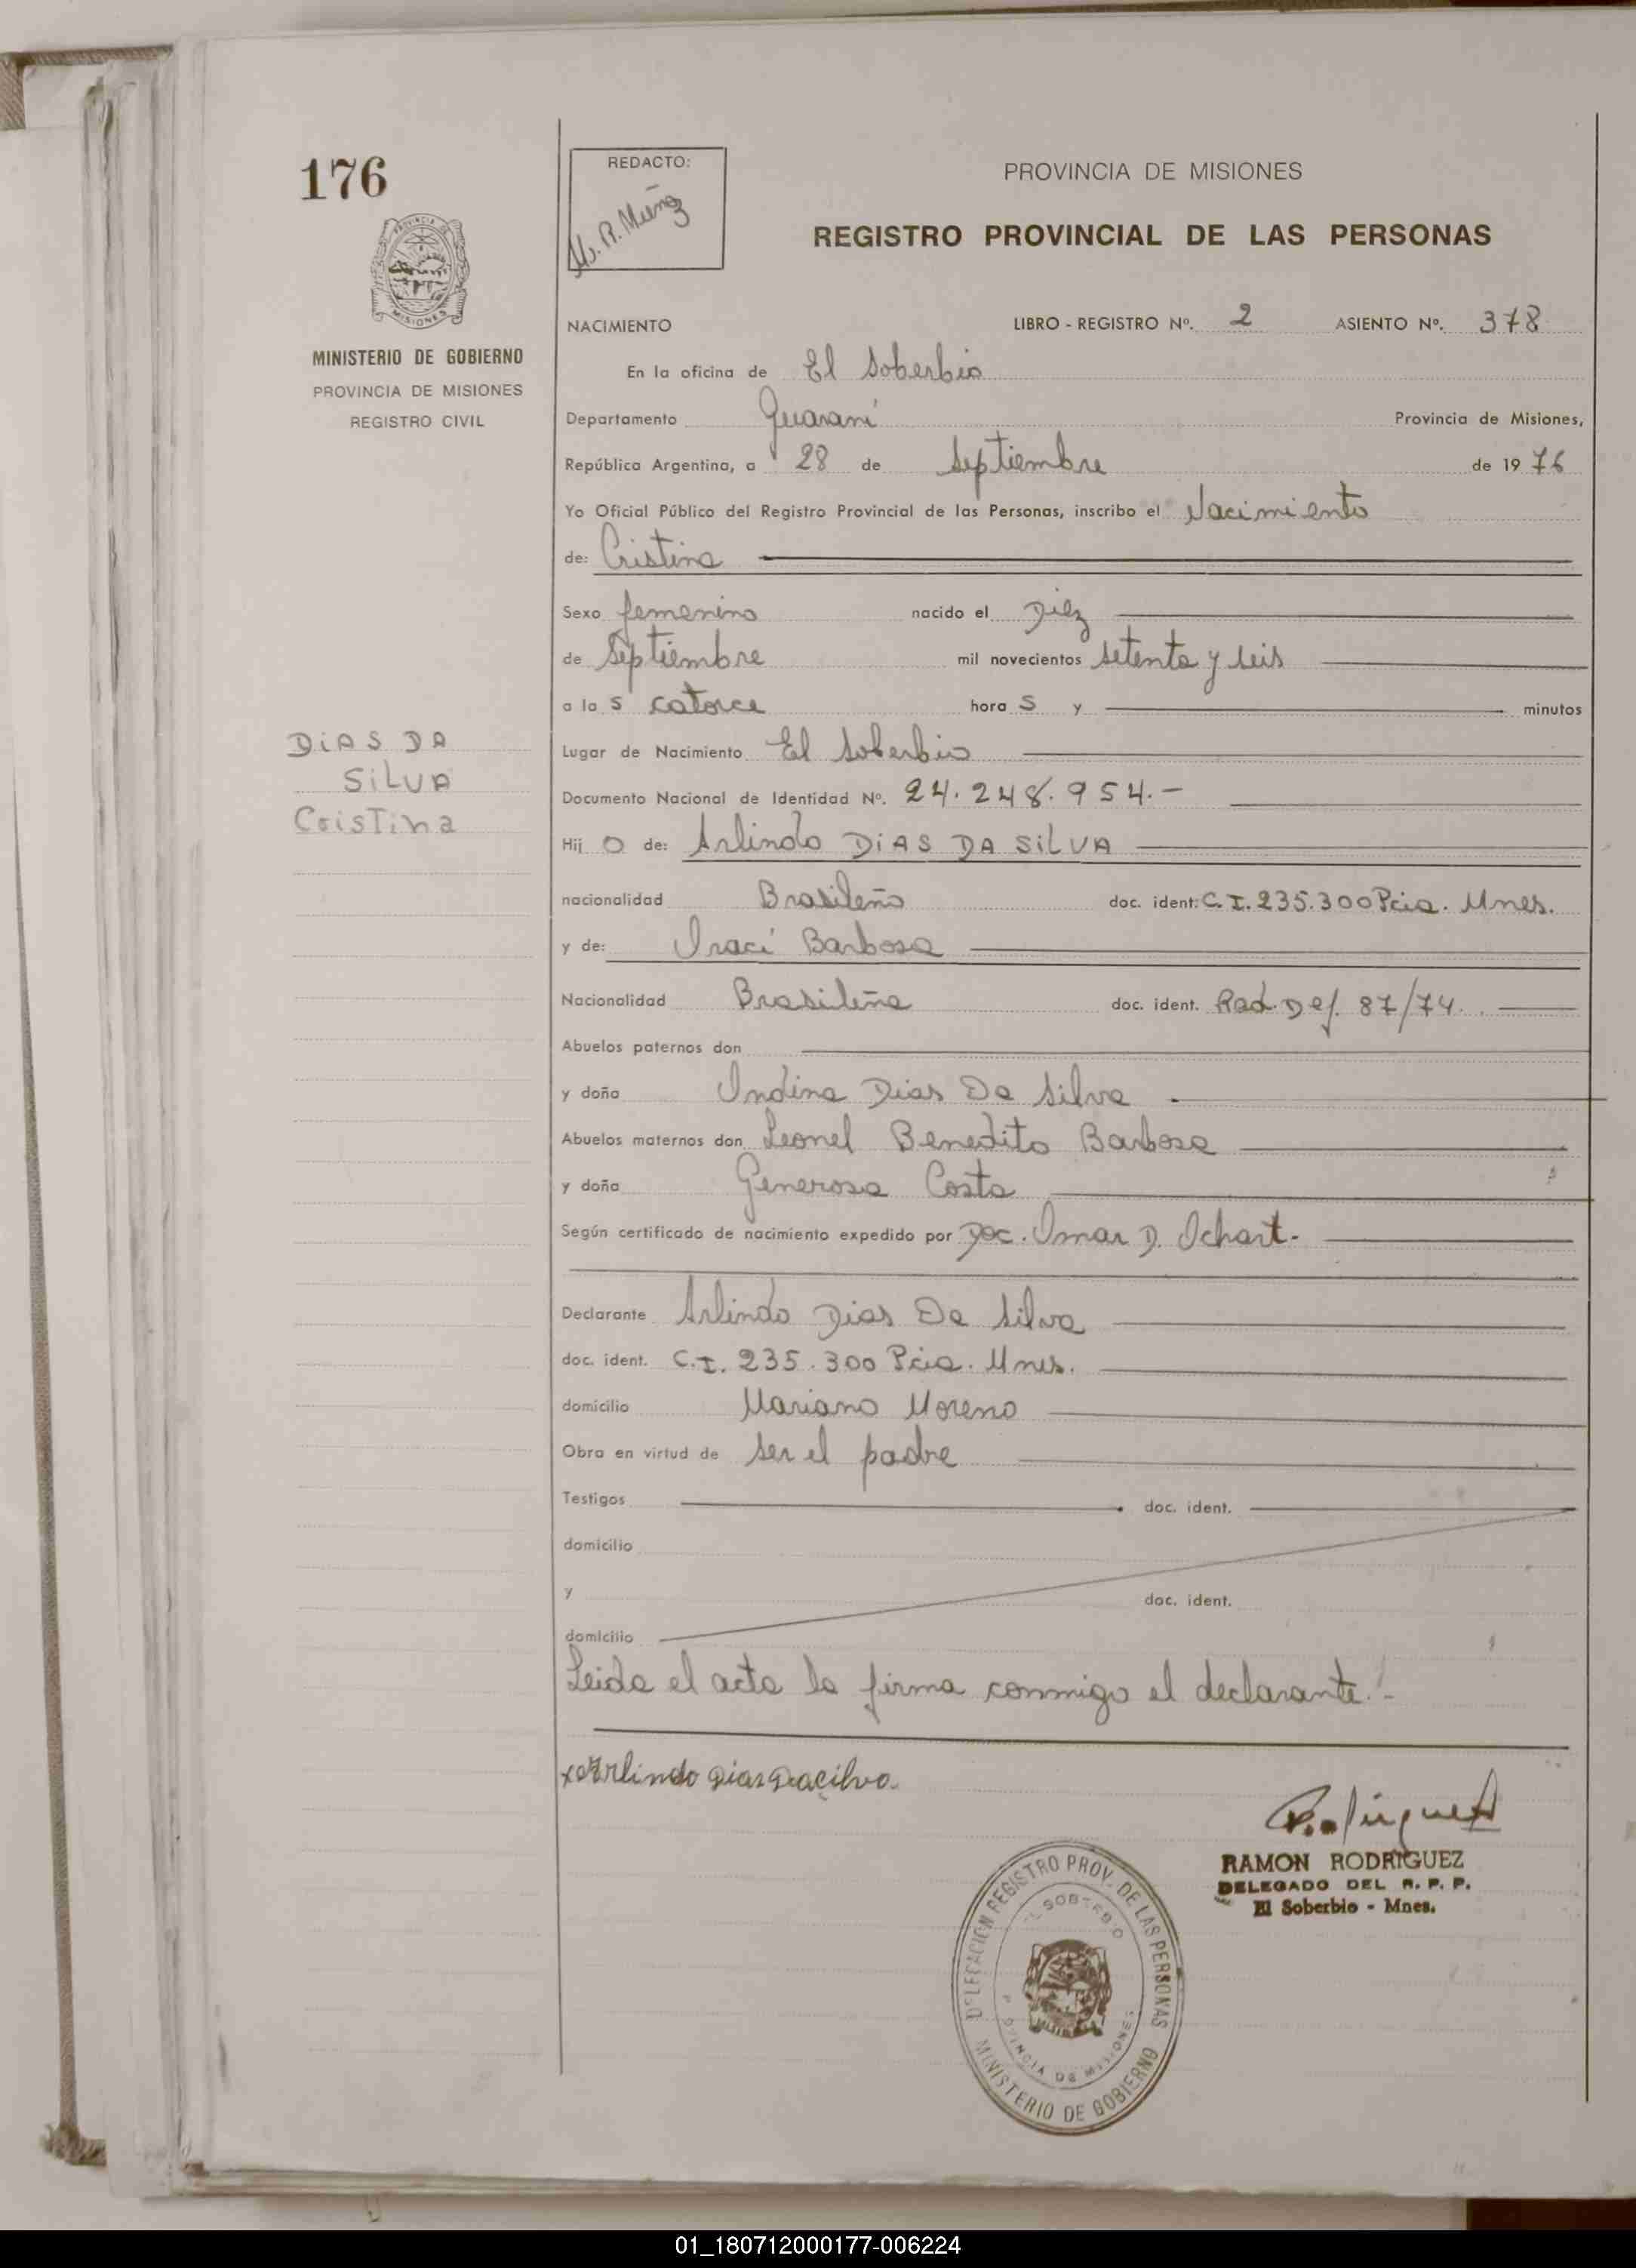 176
REDACTO:
M. R. Muñoz
PROVINCIA DE MISIONES
REGISTRO PROVINCIAL DE LAS PERSONAS
PROVINCIA
MISIONES
MINISTERIO DE GOBIERNO
PROVINCIA DE MISIONES
REGISTRO CIVIL
NACIMIENTO LIBRO - REGISTRO Nº. 2 ASIENTO Nº. 378
En la oficina de El Soberbio
Departamento Guaraní Provincia de Misiones,
República Argentina, a 28 de Septiembre de 1976
Yo Oficial Público del Registro Provincial de las Personas, inscribo el Nacimiento
de: Cristina
Sexo femenino nacido el Diez
de Septiembre mil novecientos setenta y seis
a la s catorce hora s y minutos
DiAS DA
SiLVA
CrisTina
Lugar de Nacimiento El Soberbio
Documento Nacional de Identidad Nº. 24.248.954.-
Hij o de: Arlindo DiAS DA SiLVA
nacionalidad Brasileño doc. ident: C.I. 235.300 Pcia. Mnes.
y de: Iraci Barbosa
Nacionalidad Brasileña doc. ident. Rad. Def. 87/74.
Abuelos paternos don
y doña Indina Dias Da Silva
Abuelos maternos don Leonel Benedito Barbosa
y doña Generosa Costa
Según certificado de nacimiento expedido por Doc. Omar D. Ochart.-
Declarante Arlindo Dias Da Silva
doc. ident. C.I. 235.300 Pcia. Mnes.
domicilio Mariano Moreno
Obra en virtud de ser el padre
Testigos doc. ident.
domicilio
y doc. ident.
domicilio
Leida el acta la firma conmigo el declarante.-
x Arlindo Dias Dacilva.
Rodriguez
RAMON RODRIGUEZ
DELEGADO DEL R. P. P.
El Soberbio - Mnes.
DELEGACION REGISTRO PROV. DE LAS PERSONAS
EL SOBERBIO
PROVINCIA DE MISIONES
MINISTERIO DE GOBIERNO
01_180712000177-006224